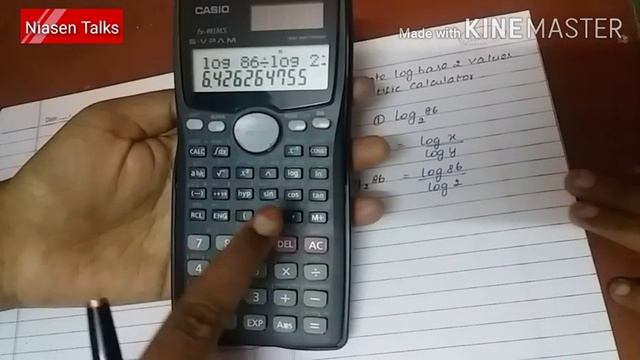 Niasen Talks
Made with KINEMASTER
CASIO
S-V.P.A.M.
log 86÷log 2
6.426264755
log base 2 values
calculator
① log₂86
= log x
log y
= log 86
log 2
CALC ∫dx x⁻¹ CONST
a b/c √ x² ^ log ln
(-) hyp sin cos tan
RCL ENG ( M+
7 8 DEL AC
4 × ÷
3 + −
EXP Ans =